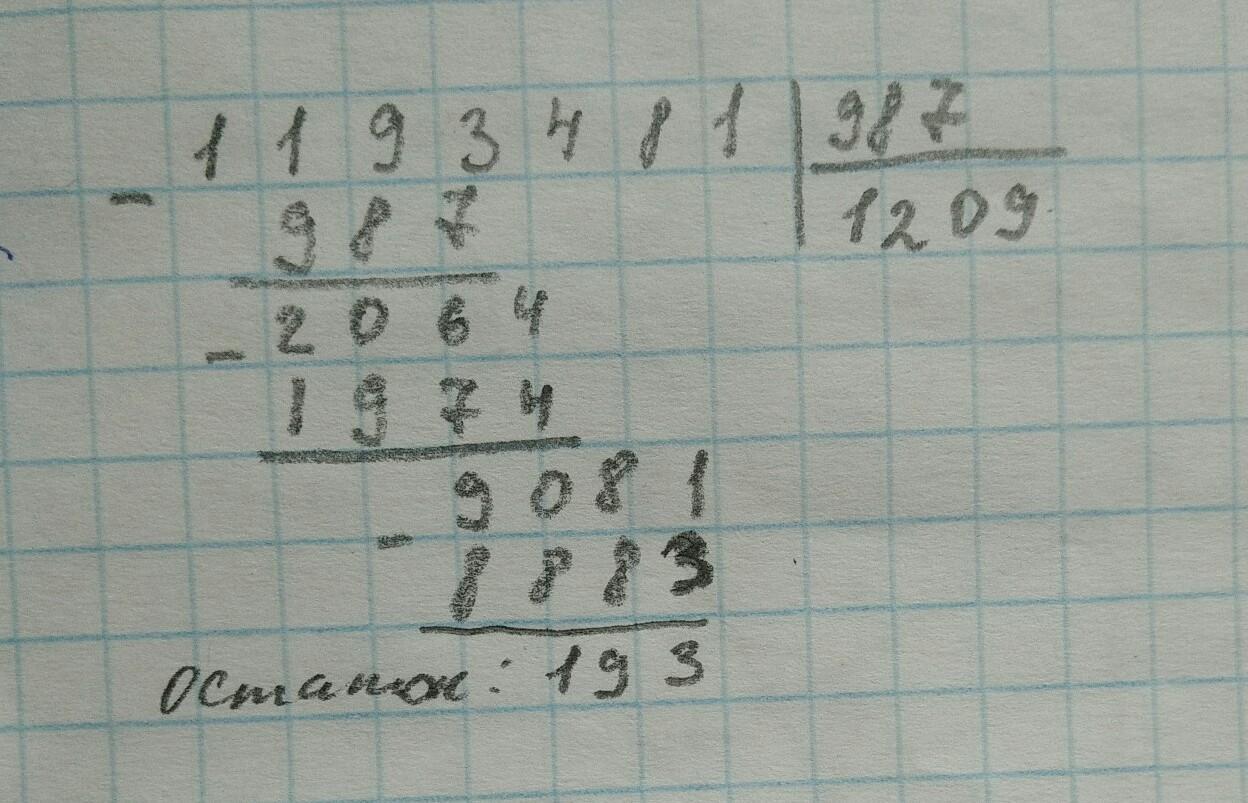 1193481 | 987
- 987 | 1209
2064
- 1974
9081
- 8883
Остаток: 193